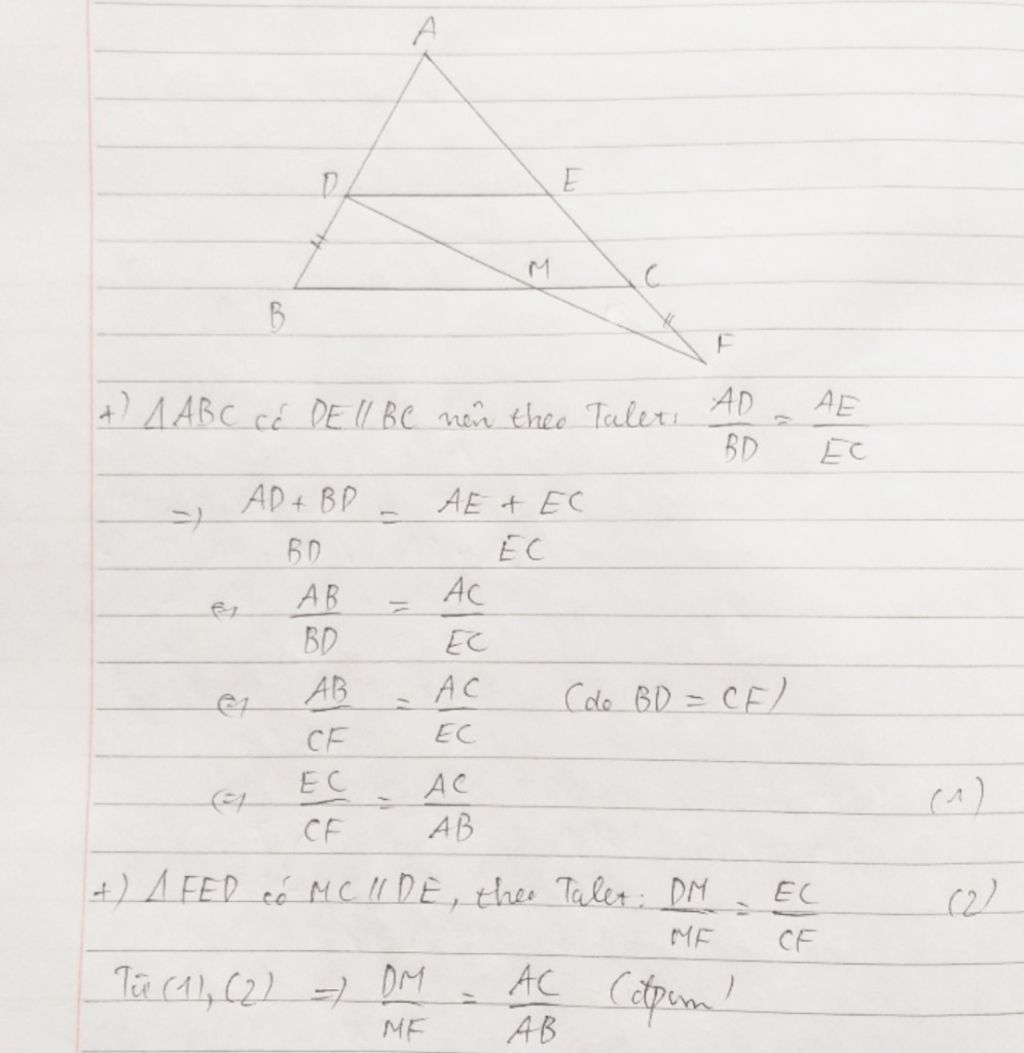 A
D E
M C
B
F
+) ΔABC có DE // BC nên theo Talet: AD/BD = AE/EC
=> (AD + BD)/BD = (AE + EC)/EC
<=> AB/BD = AC/EC
<=> AB/CF = AC/EC (do BD = CF)
<=> EC/CF = AC/AB (1)
+) ΔFED có MC // DE, theo Talet: DM/MF = EC/CF (2)
Từ (1), (2) => DM/MF = AC/AB (đpcm)